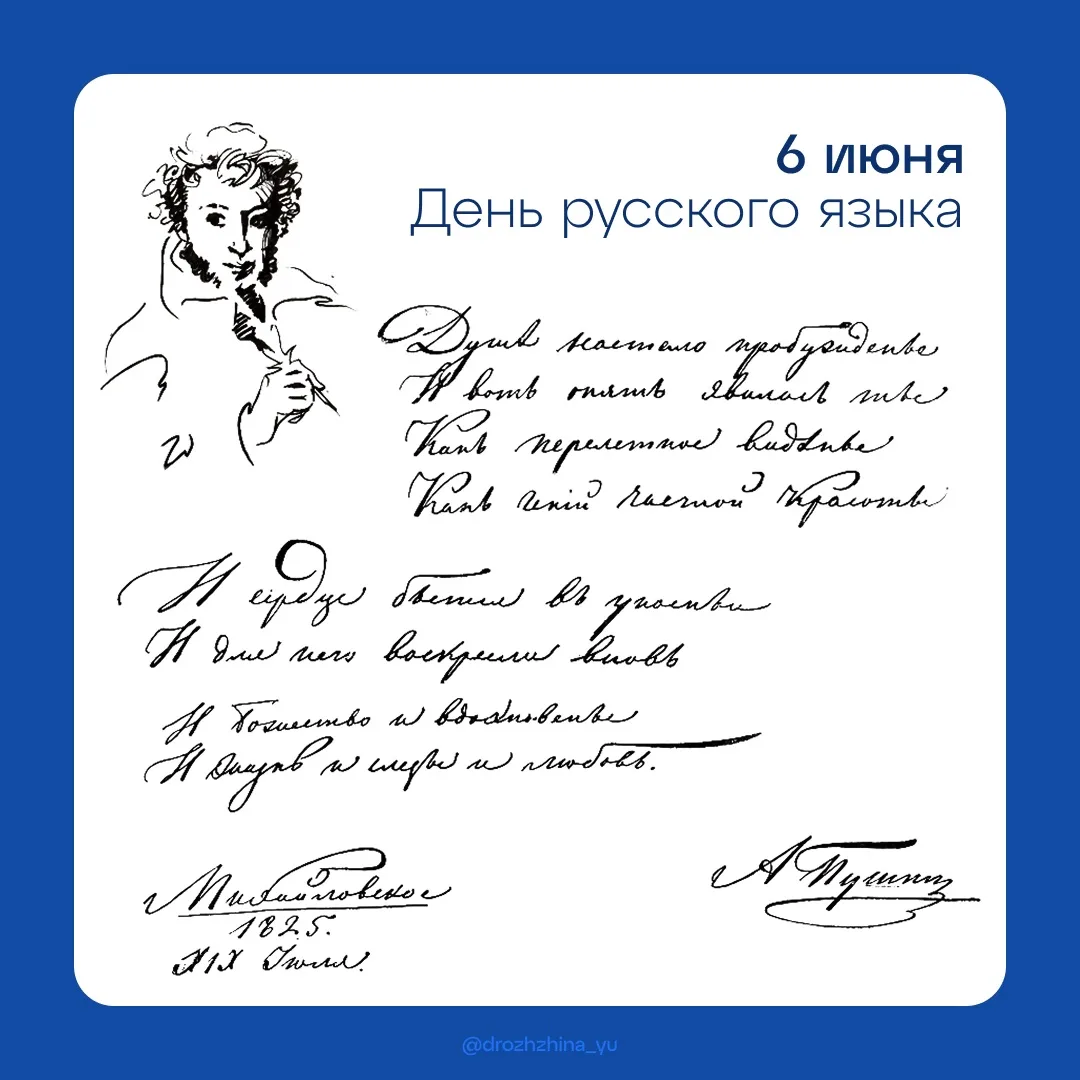 6 июня
День русского языка
Душѣ настало пробужденье
И вотъ опять явилась ты
Какъ перелетное видѣнье
Какъ геній чистой красоты
И сердце бьется въ упоеньи
И для него воскресли вновь
И Божество и вдохновенье
И жизнь и слезы и любовь.
Михайловское
1825.
XIX Іюля.
А Пушкин
@drozhzhina_yu